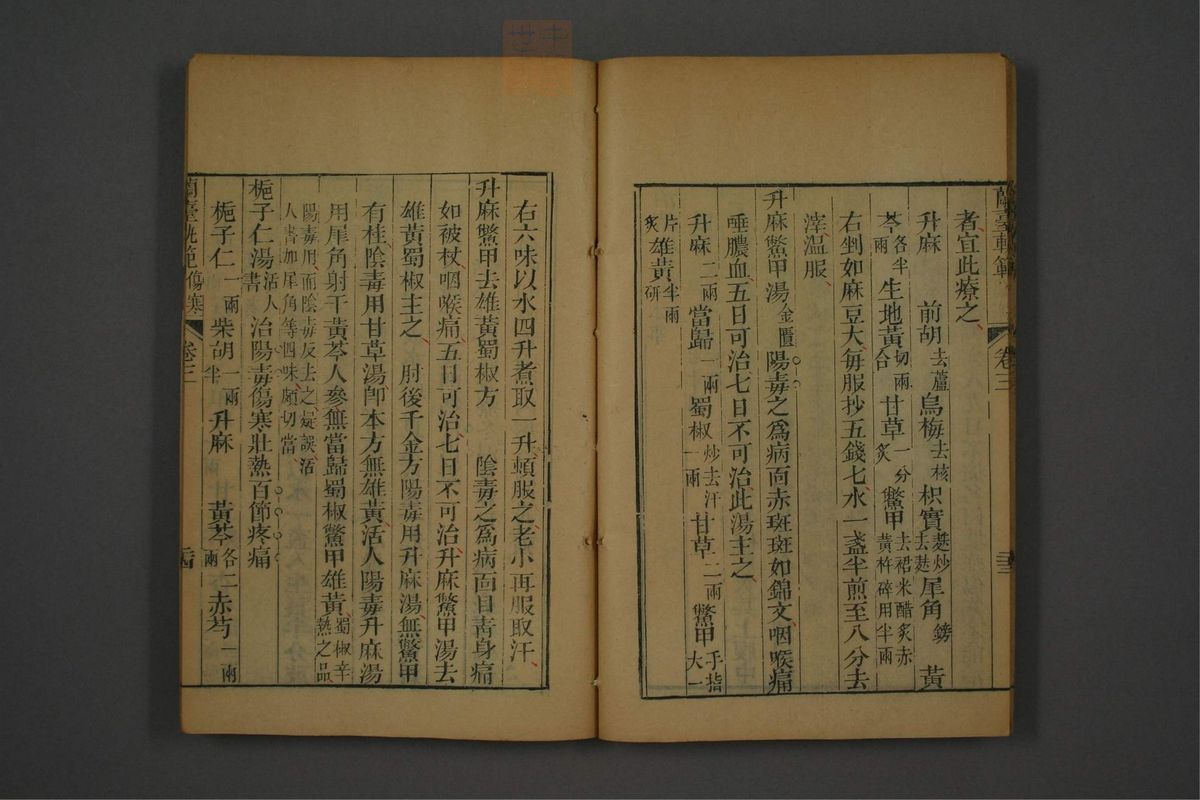 蘭臺軌範 卷三
者宜此療之
升麻 前胡去蘆 烏梅去核 枳實麩炒去麸 犀角鎊 黃
芩各半兩 生地黃切兩合 甘草一分炙 鱉甲去裙米醋炙赤黃杵碎用半兩
右剉如麻豆大每服抄五錢七水一盞半煎至八分去
滓温服
升麻鱉甲湯金匱 陽毒之爲病面赤斑斑如錦文咽喉痛
唾膿血五日可治七日不可治此湯主之
升麻二兩 當歸一兩 蜀椒炒去汗一兩 甘草二兩 鱉甲手指大一
片炙 雄黃半兩研
右六味以水四升煮取一升頓服之老小再服取汗
升麻鱉甲去雄黃蜀椒方 陰毒之爲病面目青身痛
如被杖咽喉痛五日可治七日不可治升麻鱉甲湯去
雄黃蜀椒主之 肘後千金方陽毒用升麻湯無鱉甲
有桂陰毒用甘草湯卽本方無雄黃活人陽毒升麻湯
用犀角射干黃芩人參無當歸蜀椒鱉甲雄黃蜀椒辛熱之品
陽毒用而陰毒反去之疑誤活人書加犀角等四味頗切當
梔子仁湯活人書 治陽毒傷寒壯熱百節疼痛
梔子仁一兩 柴胡一兩半 升麻 黃芩各二兩 赤芍一兩
蘭臺軌範 傷寒 卷三